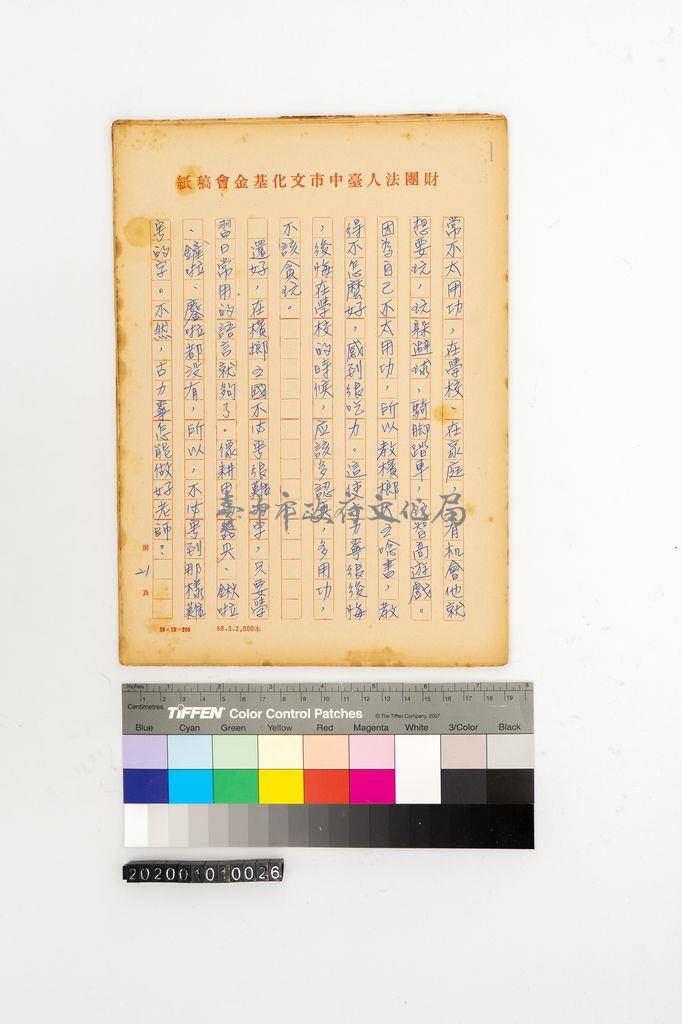 財團法人臺中市文化基金會稿紙
常不太用功，在學校、在家庭，有机會他就
想要玩，玩躲避球，騎脚踏車，高遊戲。
因為自己不太用功，所以教檳榔大王唸書，教
得不怎麼好，感到很吃力。這使力寧很後悔
，後悔在學校的時候，应該多認真，多用功，
不該貪玩。
還好，在檳榔王國不必学很難字，只要學
習日常用的語言就夠了。像耕田器具、鍬啦
、鏟啦、鑿啦都没有，所以，不必学到那樣難
的字。不然，古力寧怎能做好老師？
第21頁
20×10=200
68.3.2,000本
臺中市政府文化局
Inches 1 2 3 4 5 6 7 8
Centimetres 1 2 3 4 5 6 7 8 9 10 11 12 13 14 15 16 17 18 19
TIFFEN Color Control Patches © The Tiffen Company, 2007
Blue Cyan Green Yellow Red Magenta White 3/Color Black
202001010026